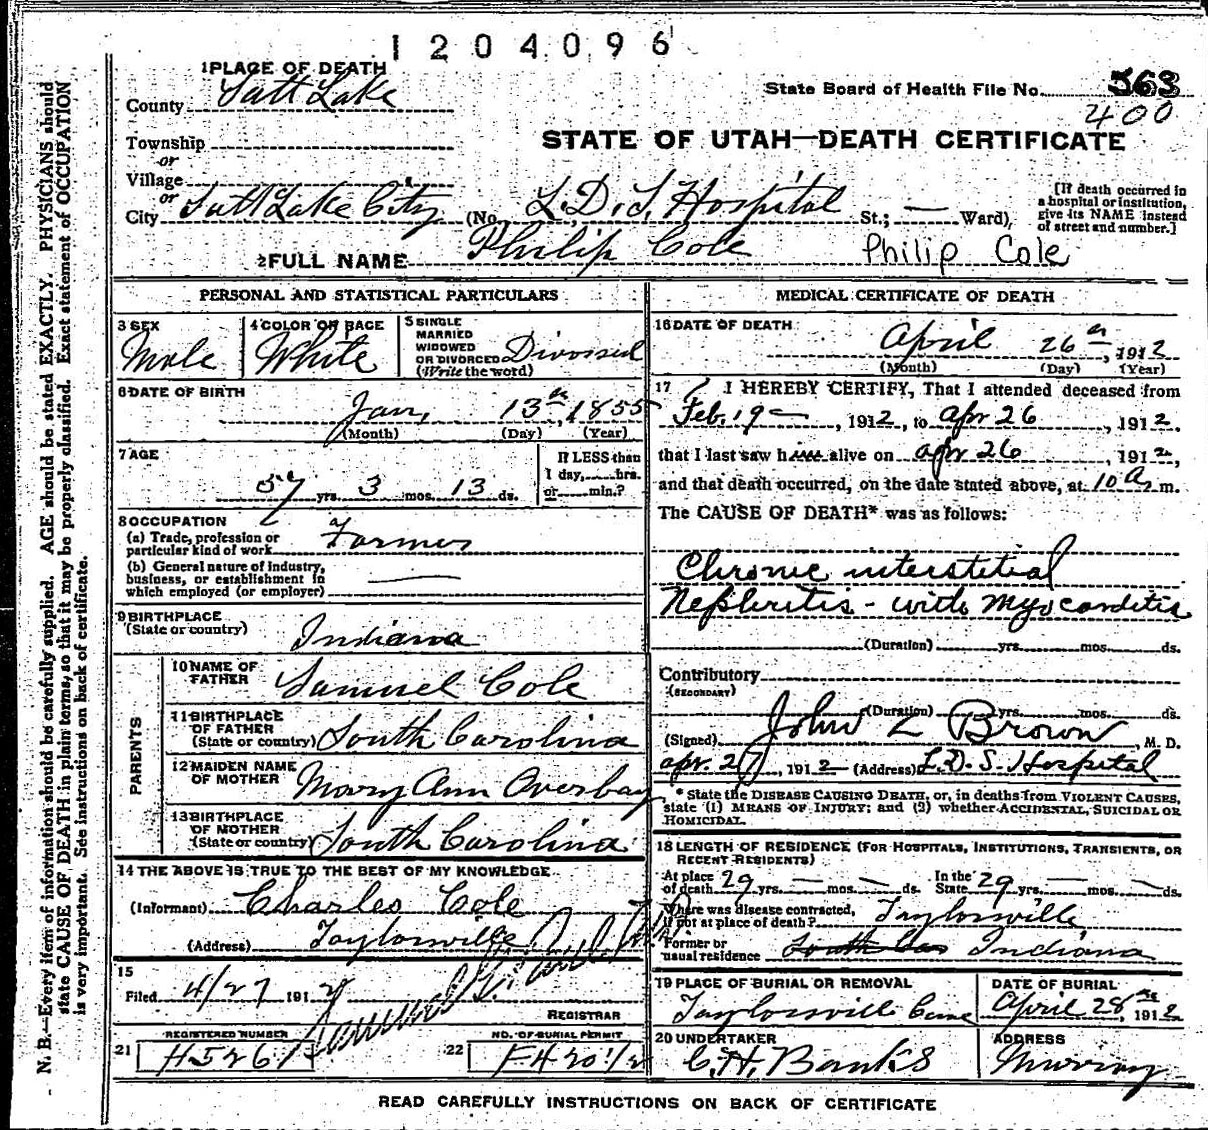 1204096
1 PLACE OF DEATH
County Salt Lake
State Board of Health File No. 563
400
Township
or
Village
or
STATE OF UTAH—DEATH CERTIFICATE
City Salt Lake City (No. L.D.S. Hospital St.; — Ward)
[If death occurred in
a hospital or institution,
give its NAME instead
of street and number.]
2 FULL NAME Philip Cole Philip Cole
PERSONAL AND STATISTICAL PARTICULARS
3 SEX
Male
4 COLOR OR RACE
White
5 SINGLE
MARRIED
WIDOWED
OR DIVORCED
(Write the word)
Divorsed
6 DATE OF BIRTH
Jan, 13th, 1855
(Month) (Day) (Year)
7 AGE
57 yrs. 3 mos. 13 ds.
If LESS than
1 day, hrs.
or min.?
8 OCCUPATION
(a) Trade, profession or
particular kind of work Farmer
(b) General nature of industry,
business, or establishment in
which employed (or employer) —
9 BIRTHPLACE
(State or country) Indiana
PARENTS
10 NAME OF
FATHER Samuel Cole
11 BIRTHPLACE
OF FATHER
(State or country) South Carolina
12 MAIDEN NAME
OF MOTHER Mary Ann Overbay
13 BIRTHPLACE
OF MOTHER
(State or country) South Carolina
14 THE ABOVE IS TRUE TO THE BEST OF MY KNOWLEDGE
(Informant) Charles Cole
(Address) Taylorsville
15
Filed 4/27 1912
REGISTRAR
REGISTERED NUMBER
21 H5261
NO. OF BURIAL PERMIT
22
MEDICAL CERTIFICATE OF DEATH
16 DATE OF DEATH
April 26th, 1912
(Month) (Day) (Year)
17 I HEREBY CERTIFY, That I attended deceased from
Feb. 19—, 1912, to apr 26, 1912.
that I last saw h alive on apr 26, 1912,
and that death occurred, on the date stated above, at 10 a m.
The CAUSE OF DEATH* was as follows:
Chronic interstitial
Nephritis - with Myocarditis
(Duration) yrs. mos. ds.
Contributory
(SECONDARY)
(Duration) yrs. mos. ds.
(Signed) John L Brown, M. D.
apr. 27, 1912 (Address) L.D.S. Hospital
* State the DISEASE CAUSING DEATH, or, in deaths from VIOLENT CAUSES,
state (1) MEANS OF INJURY; and (2) whether ACCIDENTAL, SUICIDAL OR
HOMICIDAL.
18 LENGTH OF RESIDENCE (FOR HOSPITALS, INSTITUTIONS, TRANSIENTS, OR
RECENT RESIDENTS)
At place
of death 29 yrs. — mos. — ds.
In the
State 29 yrs. — mos. — ds.
Where was disease contracted,
if not at place of death? Taylorsville
Former or
usual residence Indiana
19 PLACE OF BURIAL OR REMOVAL
Taylorsville Cem
DATE OF BURIAL
April 28th, 1912
20 UNDERTAKER
C.H. Banks
ADDRESS
Murray
READ CAREFULLY INSTRUCTIONS ON BACK OF CERTIFICATE
N. B.—Every item of information should be carefully supplied. AGE should be stated EXACTLY. PHYSICIANS should
state CAUSE OF DEATH in plain terms, so that it may be properly classified. Exact statement of OCCUPATION
is very important. See instructions on back of certificate.